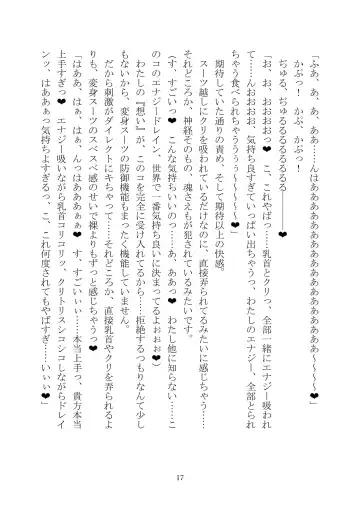 「ふあ、あ、あ、ああ……んはああああああああああああああ～～～～❤」
　かぷっ！　か、かぷっ！
　ぢゅる、ぢゅるるるるるるる――――❤
「お、おおおおおっ❤　こ、これやばっ……乳首とクリ、全部一緒にエナジー吸われ
て……んおおおお、気持ち良すぎていっぱい出ちゃうっ、わたしのエナジー、全部とられ
ちゃう食べられちゃうううぅぅ～～～～❤」
　期待していた通りの責め、そして期待以上の快感。
　スーツ越しにクリを吸われているだけなのに、直接弄られてるみたいに感じちゃう……
それどころか、神経そのもの、魂さえもが犯されているみたいです。
（す、すごいっ❤　こんな気持ちいいのっ……あ、ああっ❤　わたし他に知らない……こ
のコのエナジードレイン、世界で一番気持ち良いに決まってるよぉぉぉ❤）
　わたしの『想い』が、このコを完全に受け入れてるから……拒絶するつもりなんて少し
もないから、変身スーツの防御機能もまったく機能していません。
　だから刺激がダイレクトにキちゃって……それどころか、直接乳首やクリを弄られるよ
りも、変身スーツのスベスベ感のせいで裸よりもずっと感じちゃうっ❤
「はああ、はぁ、はぁ、んっはあああっ❤　す、すごいぃぃ……本当上手っ、貴方本当
上手すぎっ❤　エナジー吸いながら乳首コリコリッ、クリトリスシコシコしながらドレイ
ンッ、はああぁっ気持ちよすぎるっ、こ、これ何度されてもやばすぎ……いぃぃ❤
17